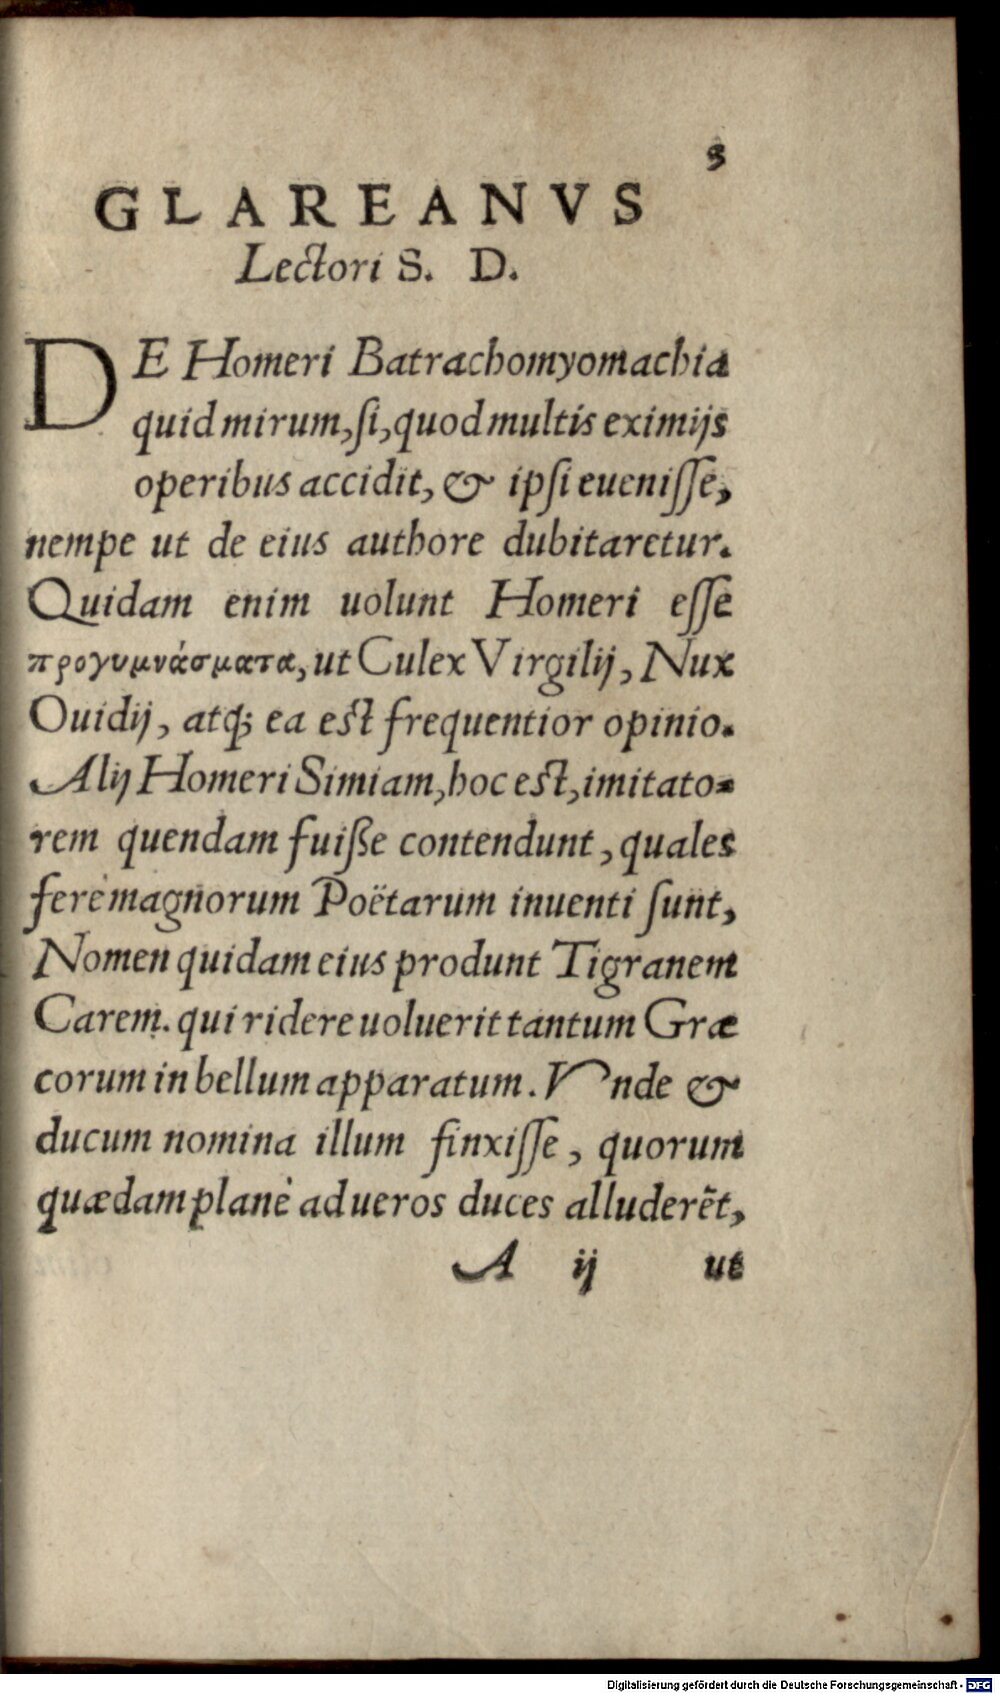 3
GLAREANVS
Lectori S. D.
DE Homeri Batrachomyomachia
quid mirum, si, quod multis eximijs
operibus accidit, & ipsi euenisse,
nempe ut de eius authore dubitaretur.
Quidam enim uolunt Homeri esse
προγυμνάσματα, ut Culex Virgilij, Nux
Ouidij, atq; ea est frequentior opinio.
Alij Homeri Simiam, hoc est, imitato=
rem quendam fuiße contendunt, quales
ferè magnorum Poëtarum inuenti sunt,
Nomen quidam eius produnt Tigranem
Carem. qui ridere uoluerit tantum Græ
corum in bellum apparatum. Vnde &
ducum nomina illum finxisse, quorum
quædam planè ad ueros duces alluderēt,
A ij ut
Digitalisierung gefördert durch die Deutsche Forschungsgemeinschaft - DFG